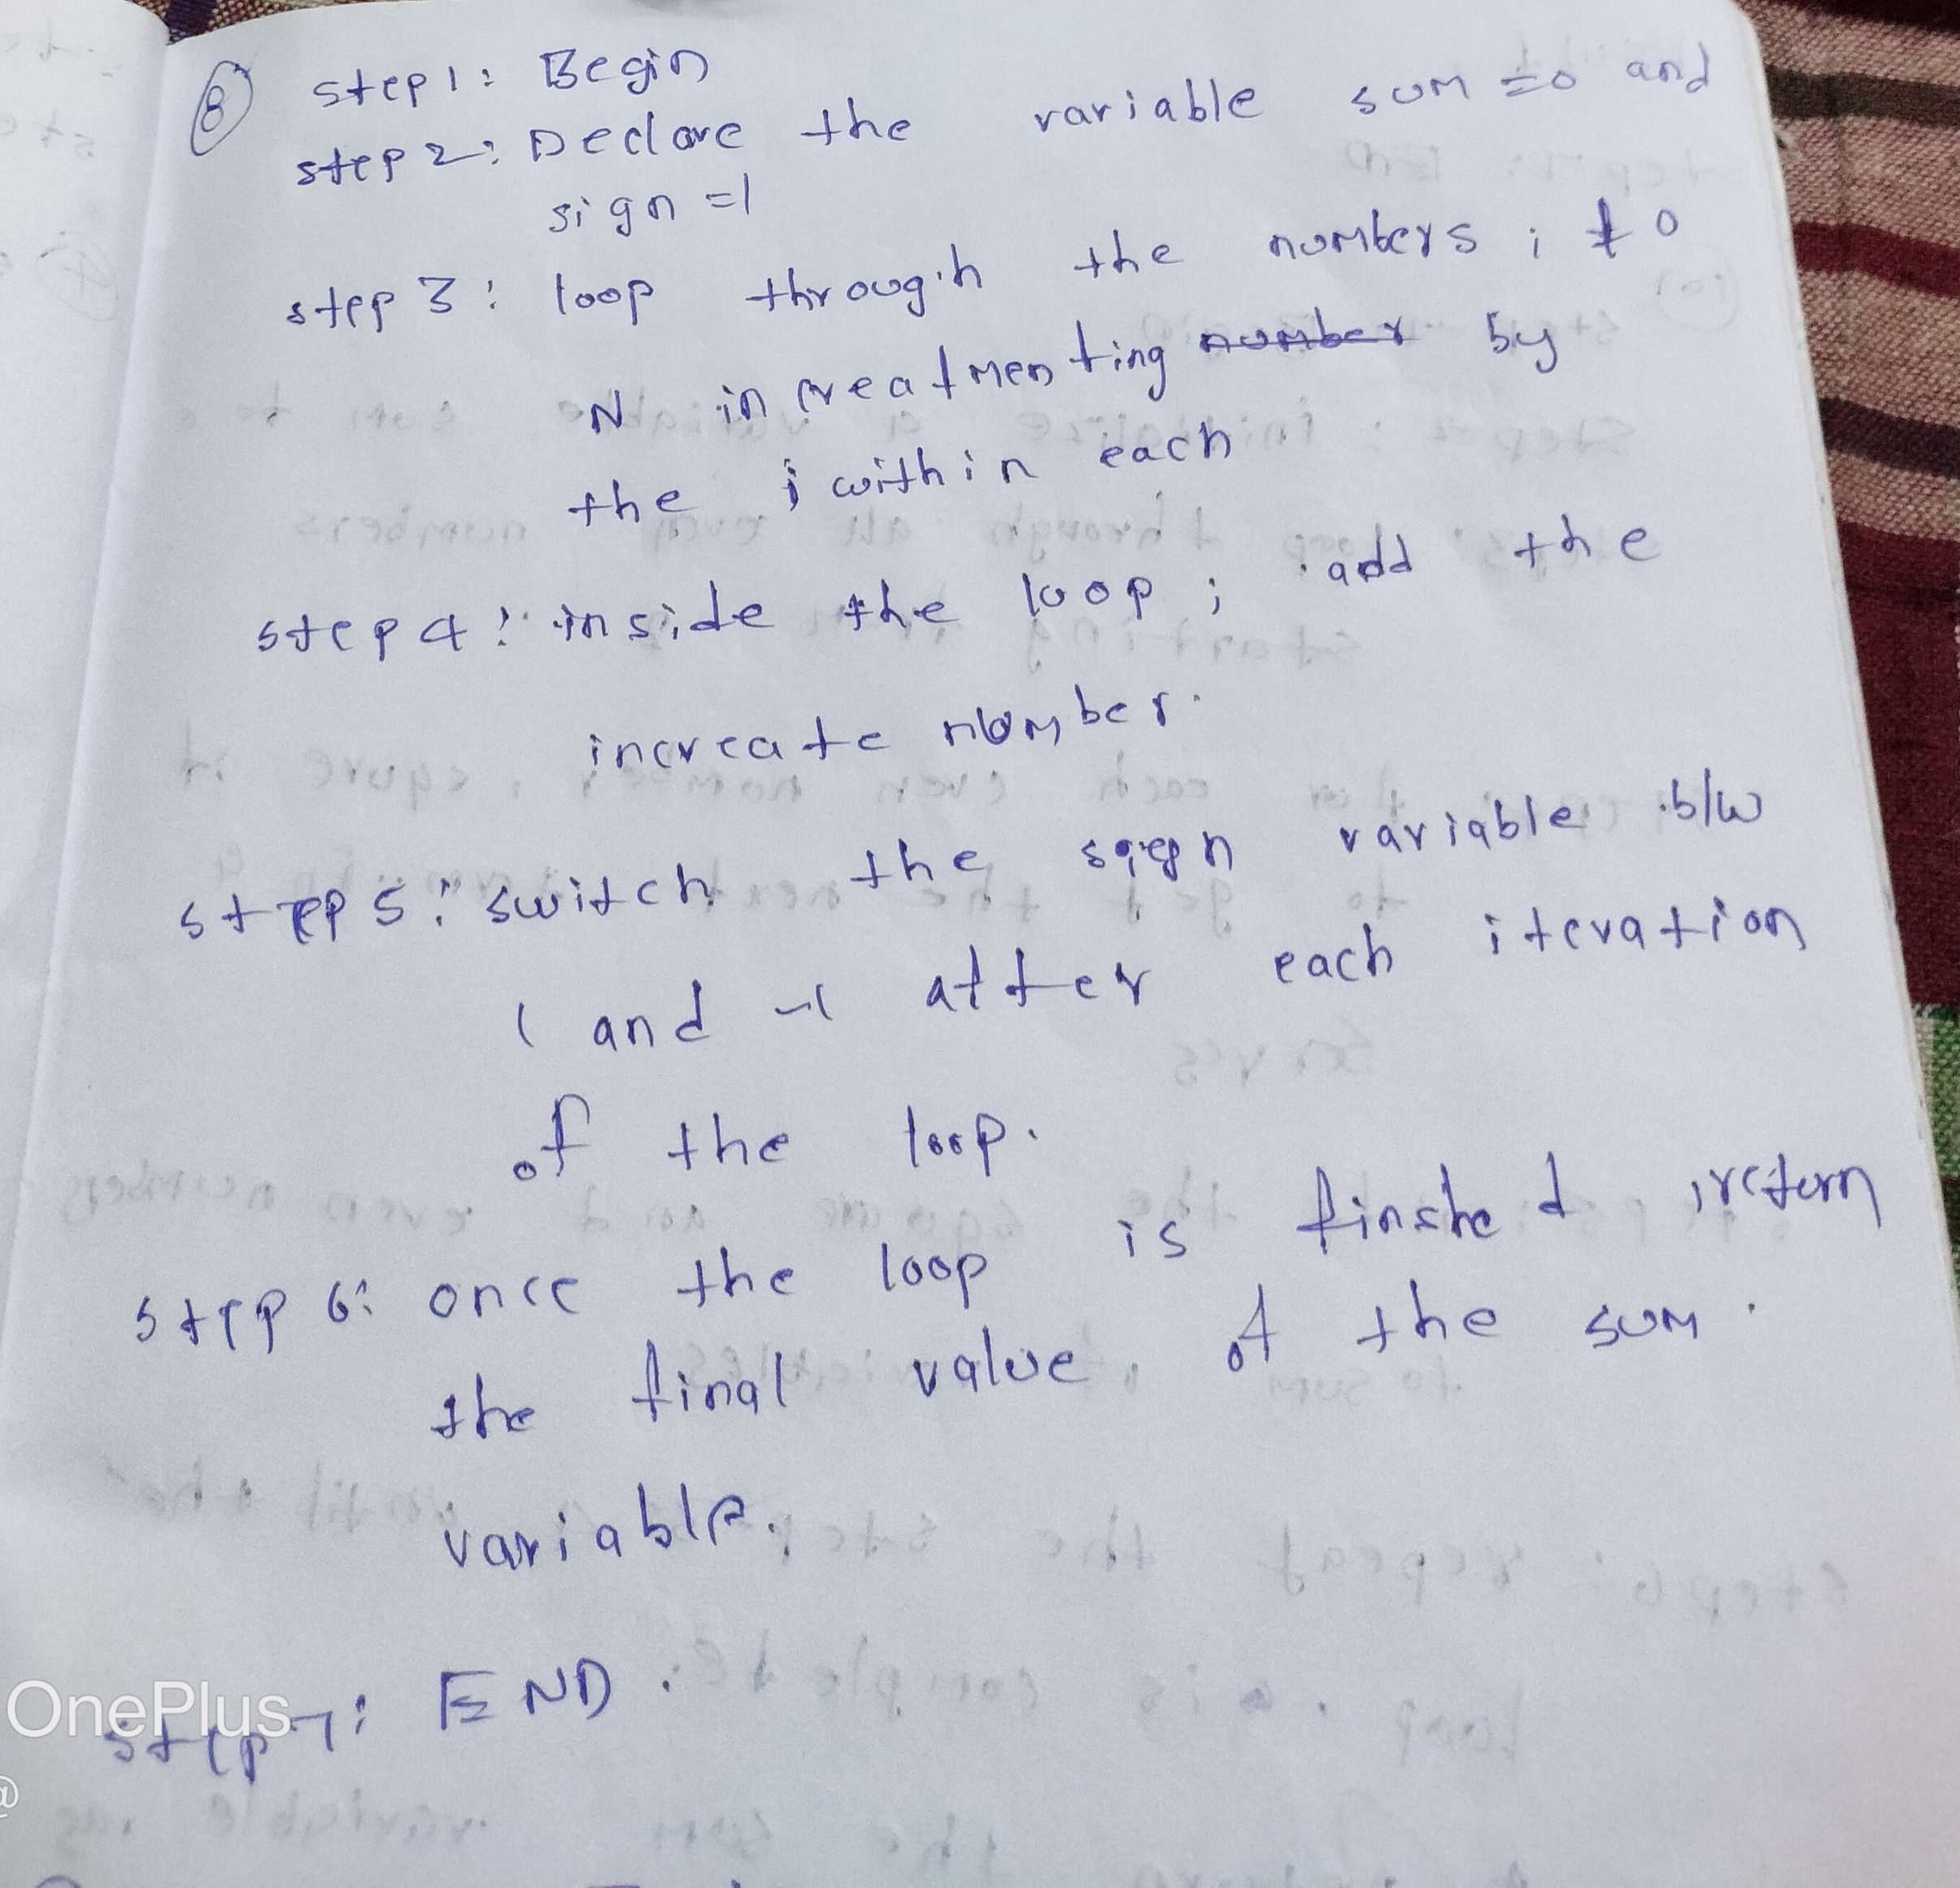 8 step 1: Begin
step 2: Declare the variable sum =0 and
sign =1
step 3: loop through the numbers i to
N increatmenting number by
the i within each
step 4: inside the loop; add the
increate number.
step 5: switch the sign variable b/w
1 and -1 after each iteration
of the loop.
step 6: once the loop is finshed, return
the final value of the sum.
variable.
step 7: END.
OnePlus
@